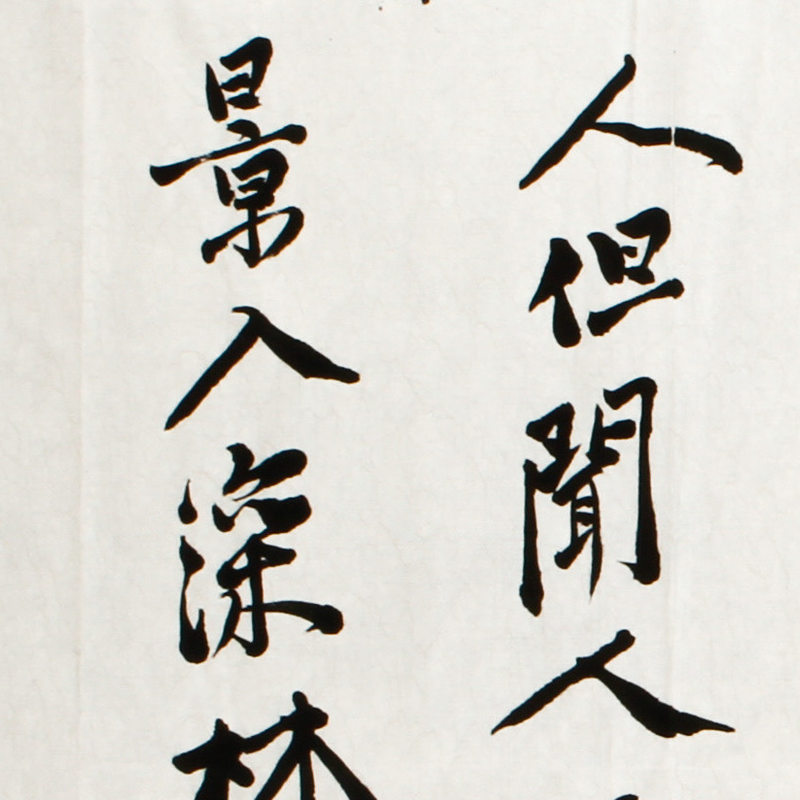 人但聞人
景入深林